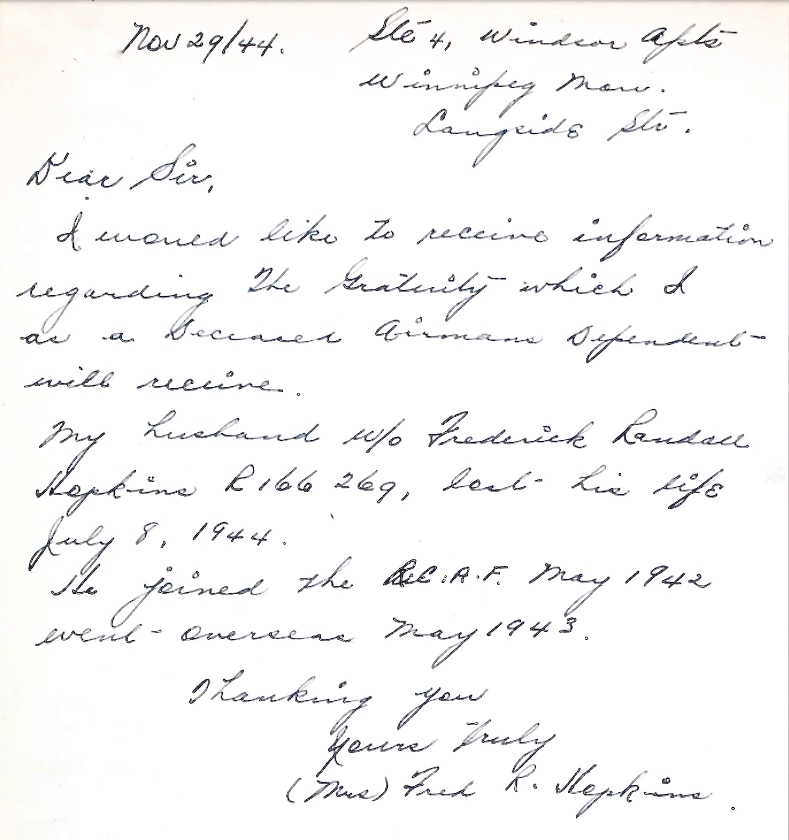 Nov 29/44. Ste 4, Windsor Apts
Winnipeg Man.
Langside Str.
Dear Sir,
I would like to receive information
regarding the Gratuity which I
as a Deceased Airmans Dependent
will receive.
My husband W/O Frederick Randall
Hopkins R166269, lost his life
July 8, 1944.
He joined the R.C.A.F. May 1942
went overseas May 1943.
Thanking you
Yours Truly
(Mrs) Fred R. Hopkins.